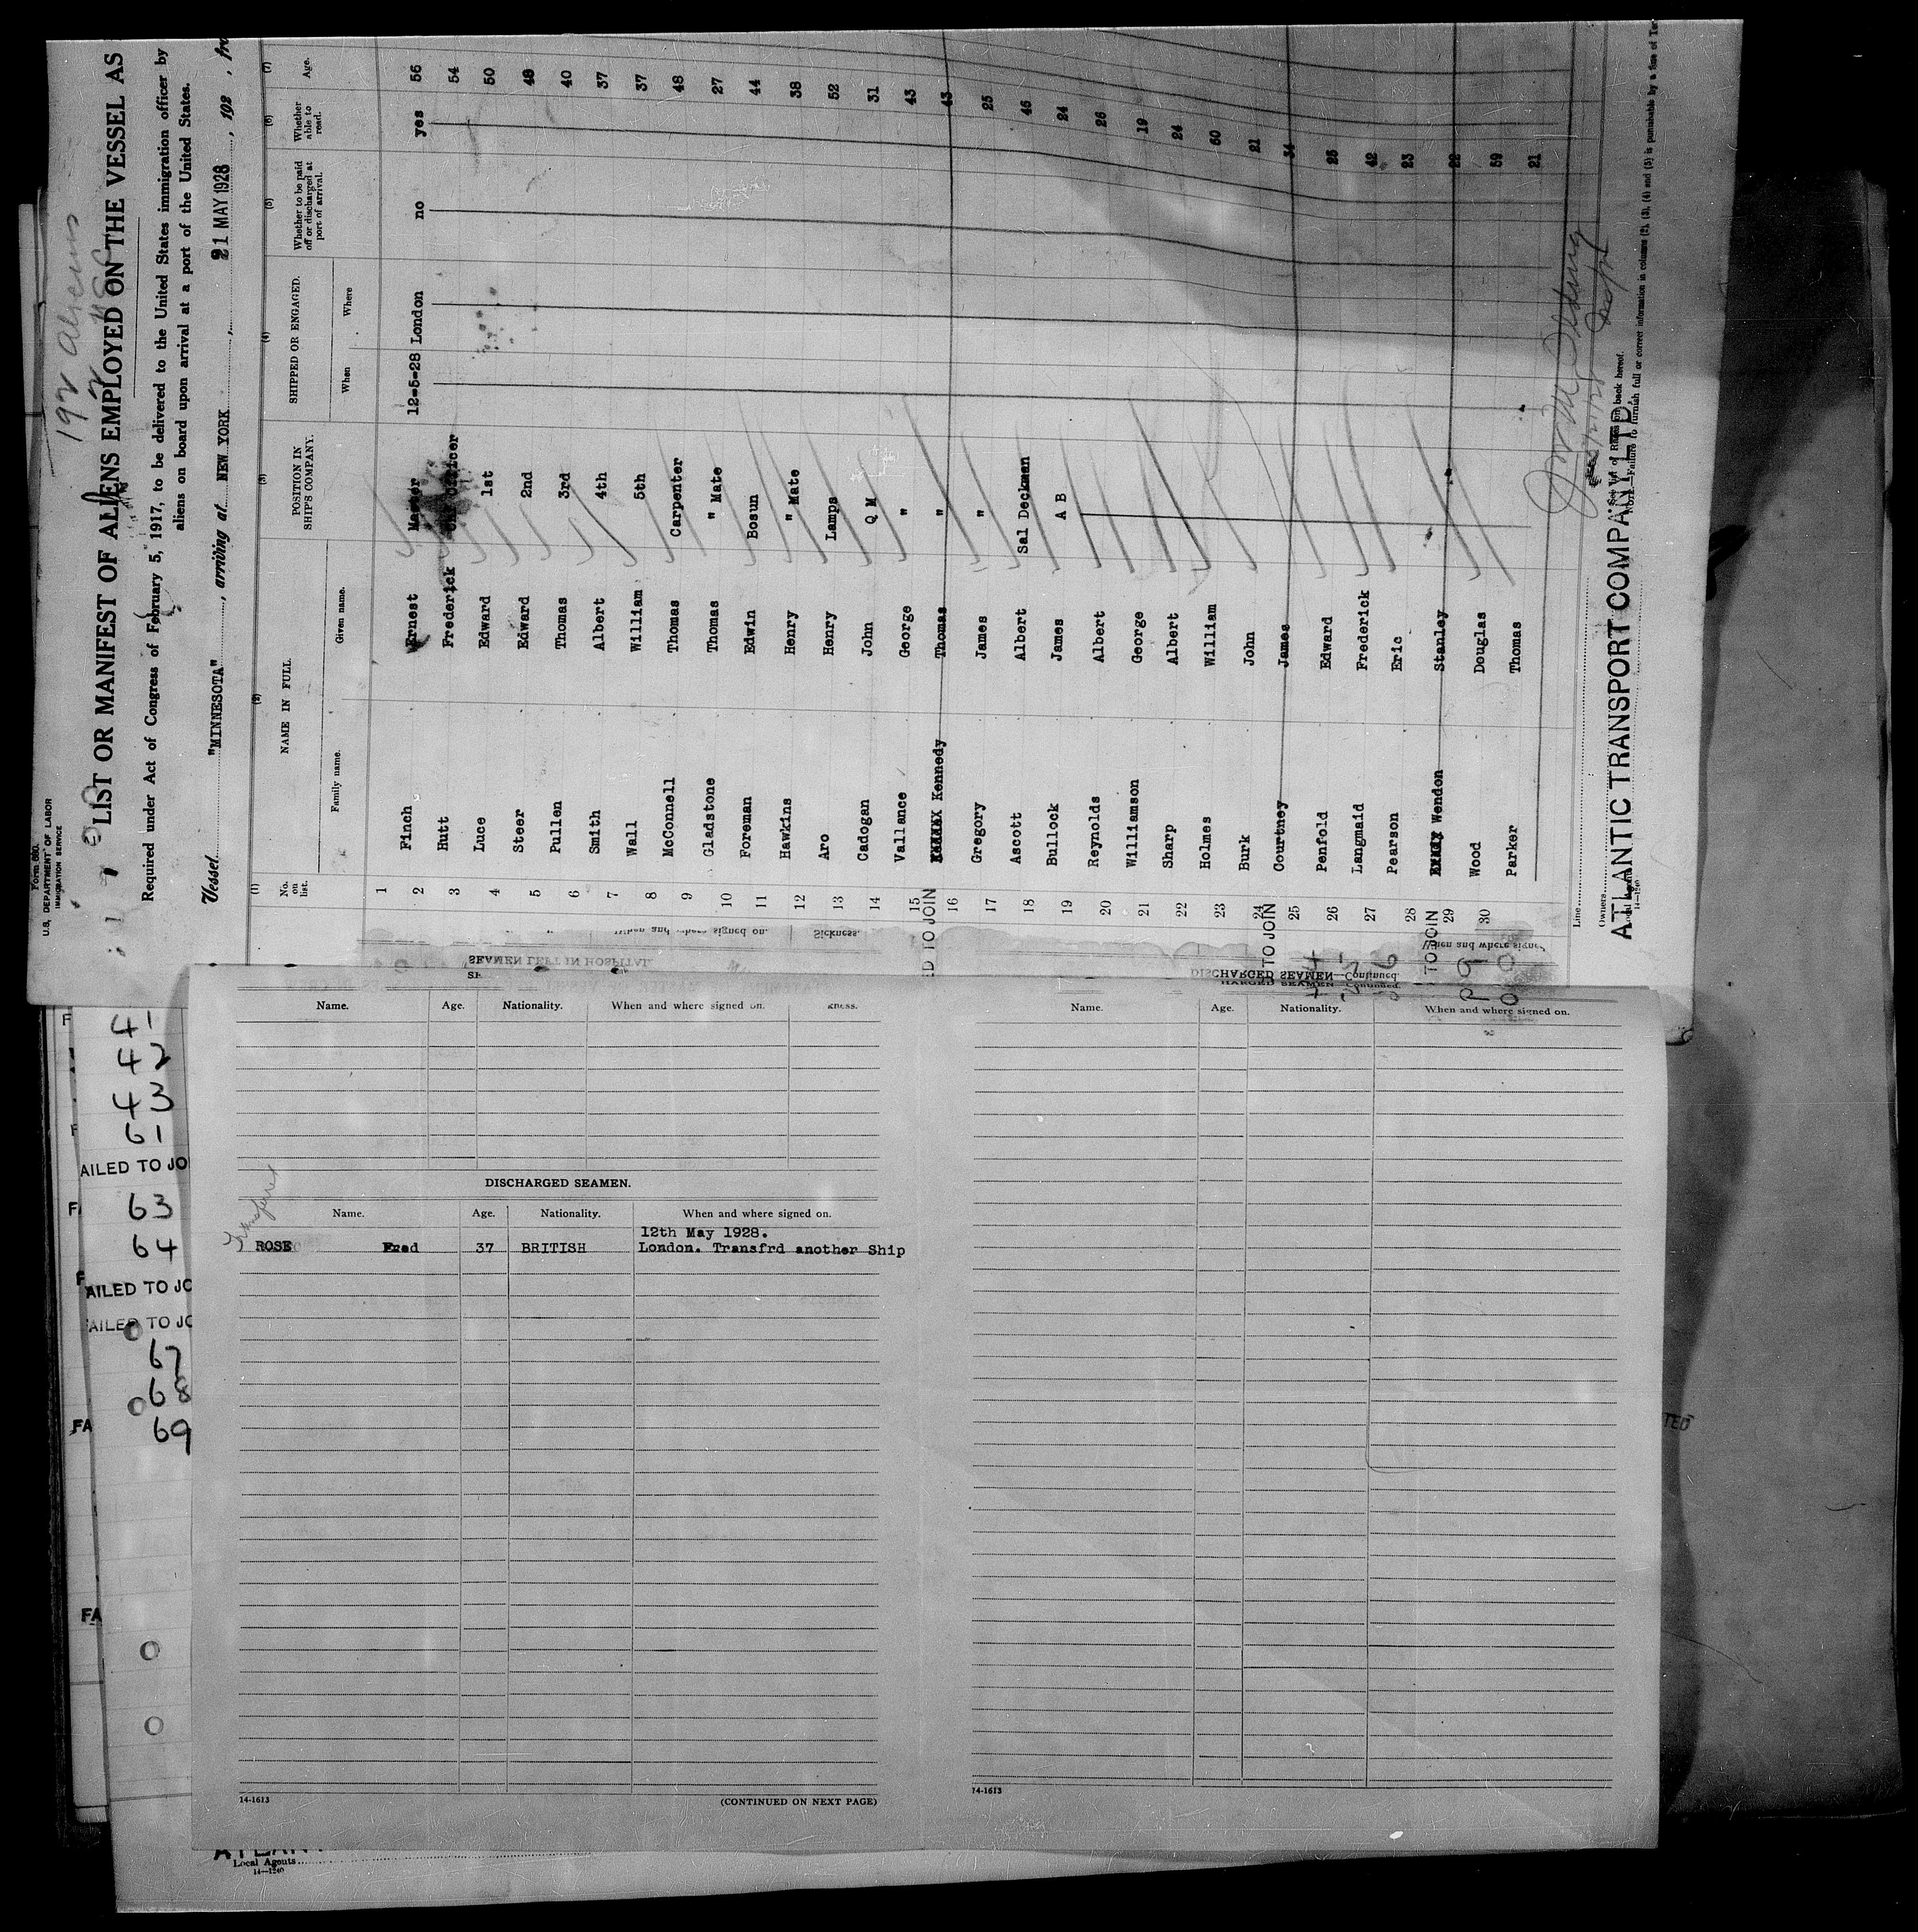 Form 680.
U.S. DEPARTMENT OF LABOR
IMMIGRATION SERVICE
192 Aliens
LIST OR MANIFEST OF ALIENS EMPLOYED ON THE VESSEL AS
Required under Act of Congress of February 5, 1917, to be delivered to the United States immigration officer by
aliens on board upon arrival at a port of the United States.
Vessel "MINNESOTA", arriving at NEW YORK, 21 MAY 1928, 192 , fro
(1) (2) (3) (4) (5) (6) (7)
No. on list. NAME IN FULL POSITION IN SHIP'S COMPANY. SHIPPED OR ENGAGED. Whether to be paid off or discharged at port of arrival. Whether able to read. Age.
Family name. Given name. When Where
1 Finch Ernest Master 12-5-28 London no yes 56
2 Hutt Frederick Officer 54
3 Luce Edward 1st 50
4 Steer Edward 2nd 48
5 Pullen Thomas 3rd 40
6 Smith Albert 4th 37
7 Wall William 5th 37
8 McConnell Thomas Carpenter 48
9 Gladstone Thomas " Mate 27
10 Foreman Edwin Bosun 44
11 Hawkins Henry " Mate 38
12 Aro Henry Lamps 52
13 Cadogan John Q M 31
14 Vallance George " 43
15 Kennedy Thomas " 43
ED TO JOIN
16 Gregory James " 25
17 Ascott Albert Sal Deckman 46
18 Bullock James A B 24
19 Reynolds Albert 26
20 Williamson George 19
21 Sharp Albert 24
22 Holmes William 60
23 Burk John 21
24 Courtney James 34
TO JOIN
25 Penfold Edward 25
26 Langmaid Frederick 42
27 Pearson Eric 23
28 Wendon Stanley 22
TO JOIN
29 Wood Douglas 59
30 Parker Thomas 21
Line
Owners
ATLANTIC TRANSPORT COMPANY LTD
Local Agents
14-1240
See list of Races on back hereof.
NOTE.—Failure to furnish full or correct information in columns (2), (3), (4) and (5) is punishable by a fine of Ten
When and where signed on. Sickness.
SEAMEN LEFT IN HOSPITAL.
When and where signe
DISCHARGED SEAMEN—Continued.
HARGED SEAMEN—Continued.
Name. Age. Nationality. When and where signed on. kness.
Name. Age. Nationality. When and where signed on.
DISCHARGED SEAMEN.
Name. Age. Nationality. When and where signed on.
Transferred
12th May 1928.
ROSE Fred 37 BRITISH London. Transfrd another Ship
14-1613
(CONTINUED ON NEXT PAGE)
14-1613
41
42
43
61
AILED TO JO
63
64
AILED TO JO
AILED TO JO
67
68
FA 69
FA
TED
ATLAN
Local Agents
14-1240